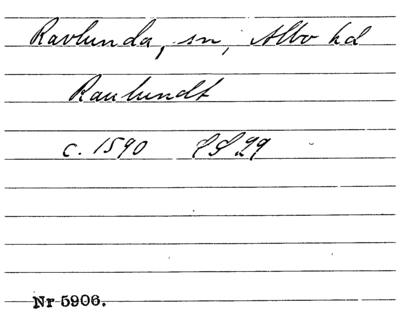 Ravlunda, sn, Albo hd
Raulundt
c. 1590 29
Nr 5906.